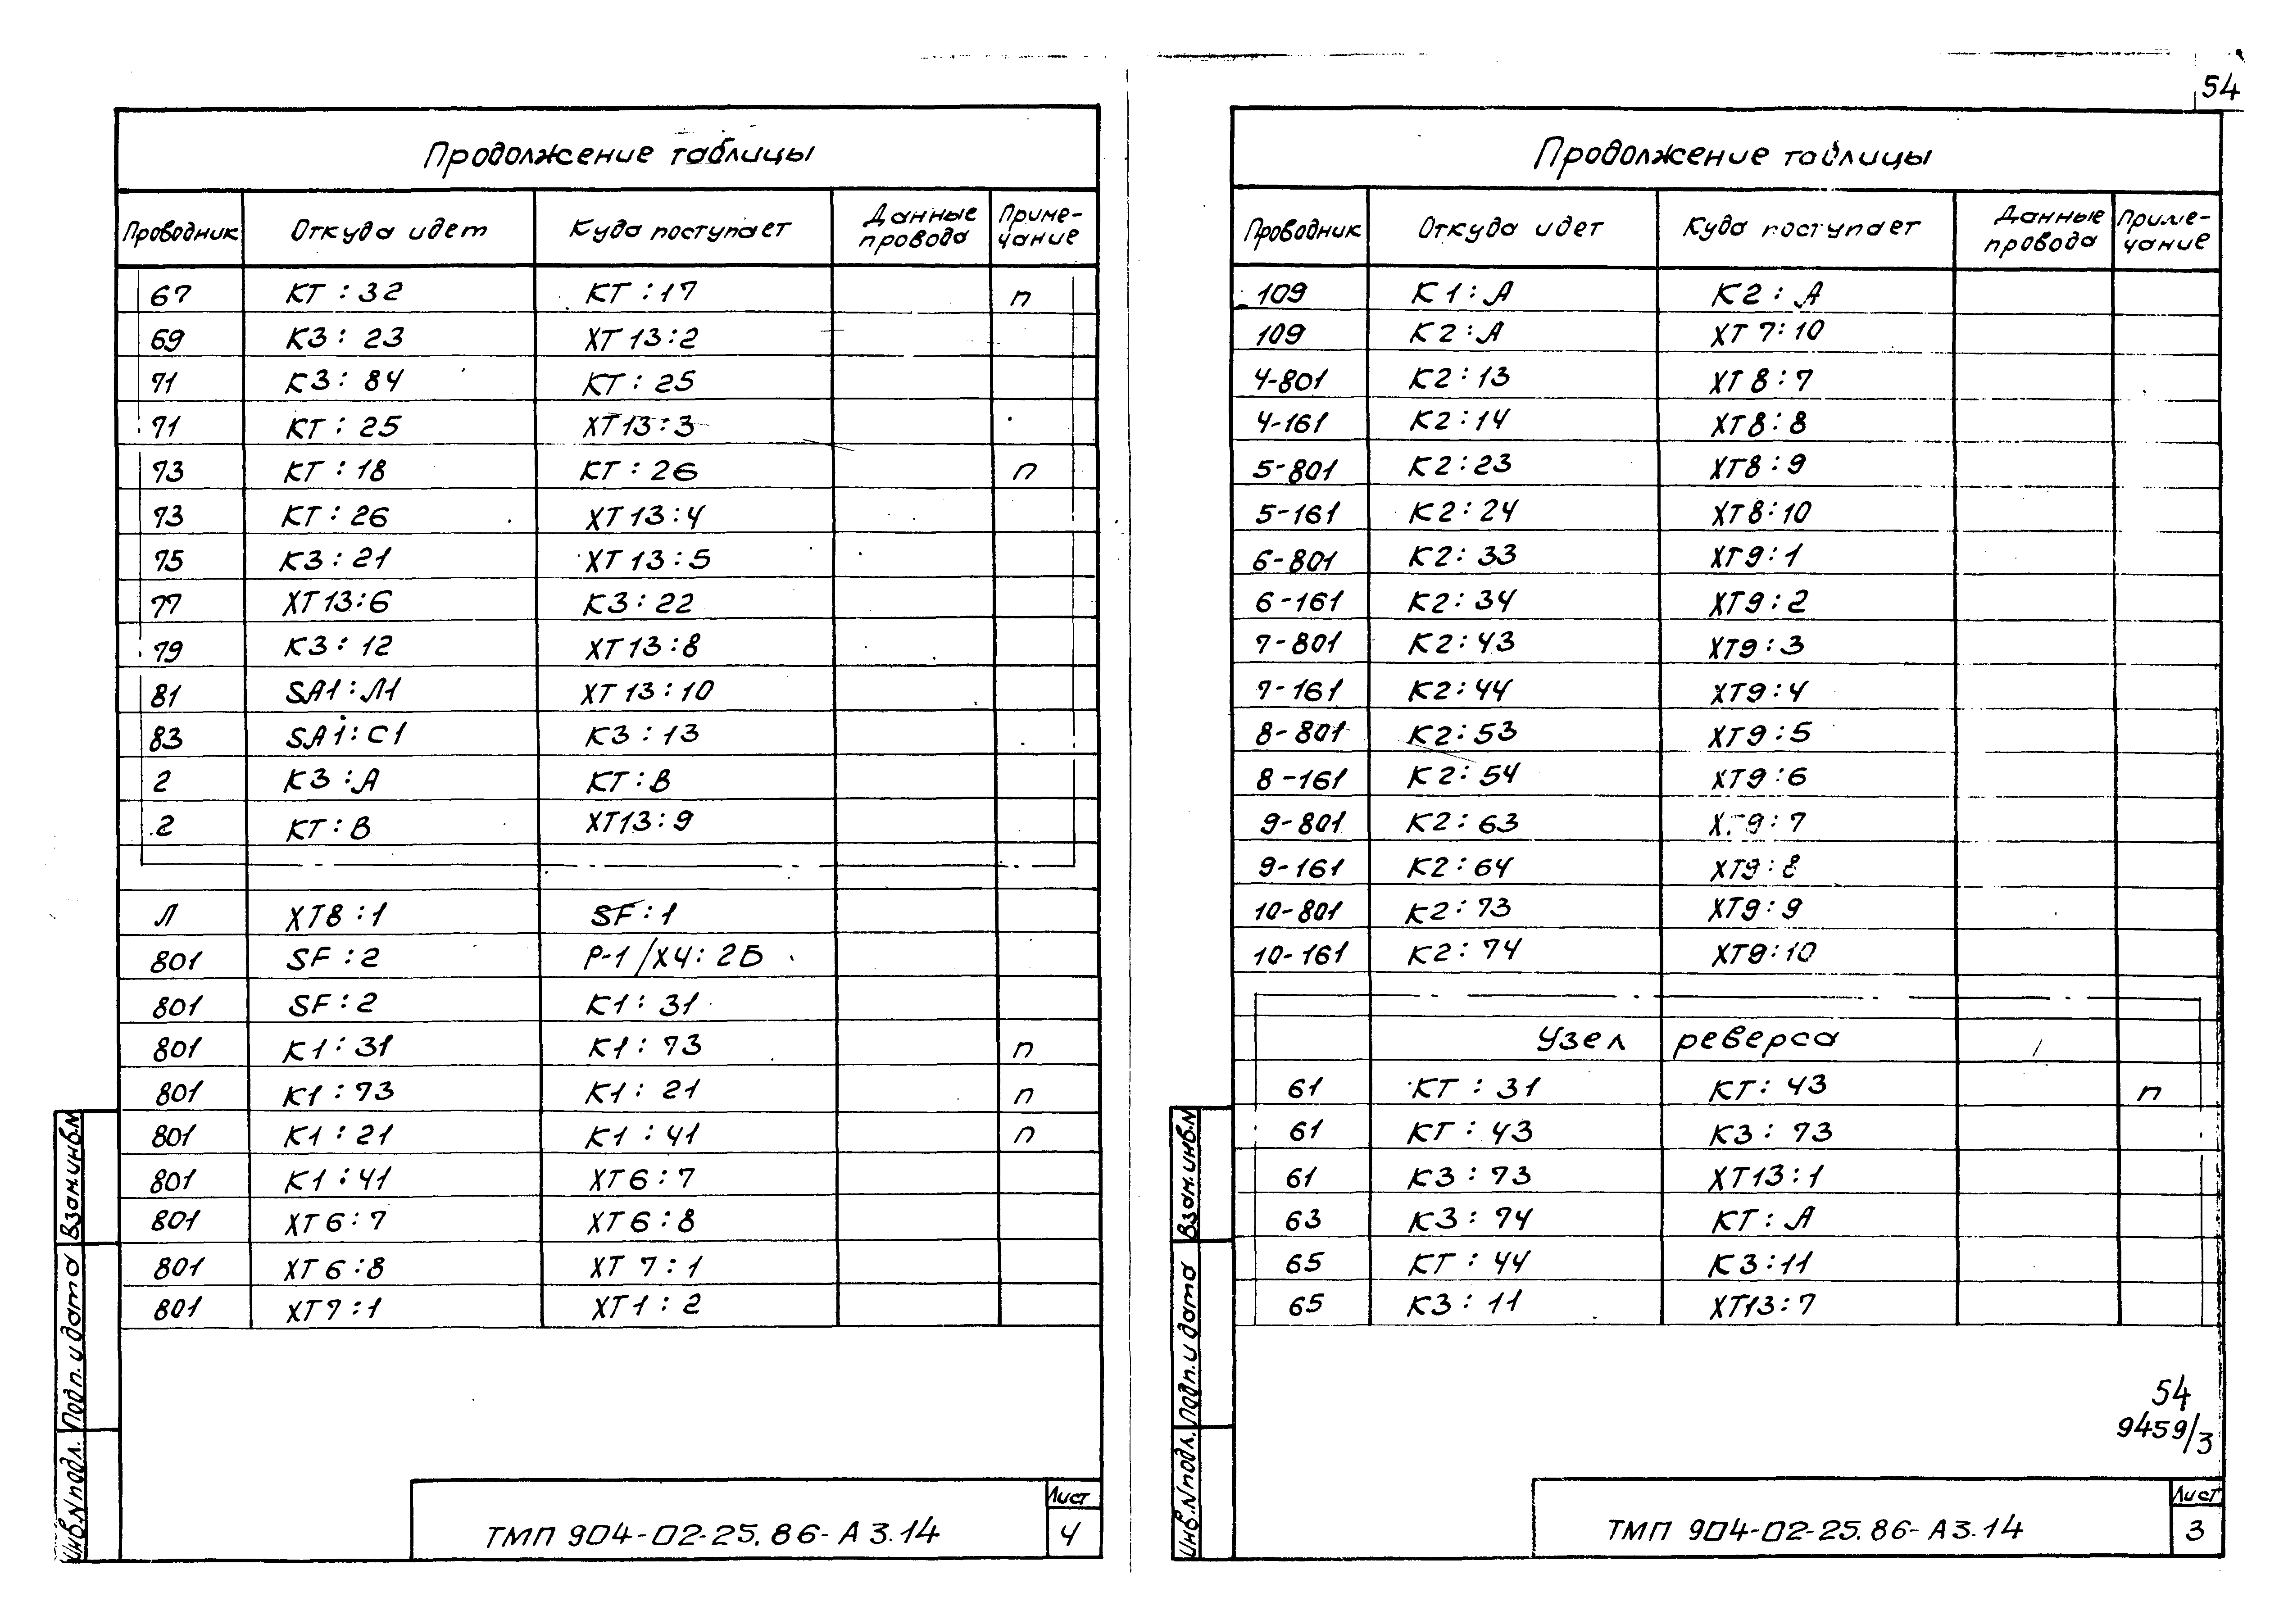 54
Продолжение таблицы
Проводник Откуда идет Куда поступает Данные провода Приме-чание
67 КТ : 32 КТ : 17 п
69 К3 : 23 ХТ13 : 2
71 К3 : 84 КТ : 25
71 КТ : 25 ХТ13 : 3
73 КТ : 18 КТ : 26 п
73 КТ : 26 ХТ13 : 4
75 К3 : 21 ХТ13 : 5
77 ХТ13 : 6 К3 : 22
79 К3 : 12 ХТ13 : 8
81 SA1 : Л1 ХТ13 : 10
83 SA1 : С1 К3 : 13
2 К3 : А КТ : В
2 КТ : В ХТ13 : 9
Л ХТ8 : 1 SF : 1
801 SF : 2 Р-1/Х4 : 2Б
801 SF : 2 К1 : 31
801 К1 : 31 К1 : 73 п
801 К1 : 73 К1 : 21 п
801 К1 : 21 К1 : 41 п
801 К1 : 41 ХТ6 : 7
801 ХТ6 : 7 ХТ6 : 8
801 ХТ6 : 8 ХТ7 : 1
801 ХТ7 : 1 ХТ1 : 2
Взам.инв.N
Подп. и дата
Инв.N подл.
ТМП 904-02-25.86-А3.14
Лист
4
Продолжение таблицы
Проводник Откуда идет Куда поступает Данные провода Приме-чание
109 К1 : А К2 : А
109 К2 : А ХТ7 : 10
4-801 К2 : 13 ХТ8 : 7
4-161 К2 : 14 ХТ8 : 8
5-801 К2 : 23 ХТ8 : 9
5-161 К2 : 24 ХТ8 : 10
6-801 К2 : 33 ХТ9 : 1
6-161 К2 : 34 ХТ9 : 2
7-801 К2 : 43 ХТ9 : 3
7-161 К2 : 44 ХТ9 : 4
8-801 К2 : 53 ХТ9 : 5
8-161 К2 : 54 ХТ9 : 6
9-801 К2 : 63 ХТ9 : 7
9-161 К2 : 64 ХТ9 : 8
10-801 К2 : 73 ХТ9 : 9
10-161 К2 : 74 ХТ9 : 10
Узел реверса
61 КТ : 31 КТ : 43 п
61 КТ : 43 К3 : 73
61 К3 : 73 ХТ13 : 1
63 К3 : 74 КТ : А
65 КТ : 44 К3 : 11
65 К3 : 11 ХТ13 : 7
54
9459/3
Взам.инв.N
Подп. и дата
Инв.N подл.
ТМП 904-02-25.86-А3.14
Лист
3